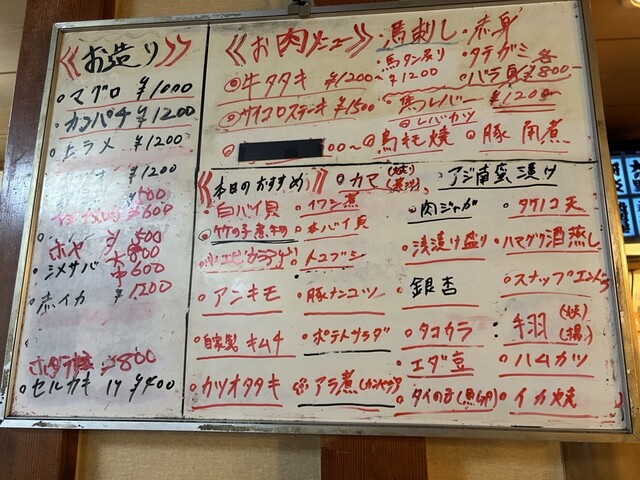 お造り
マグロ ¥1000
カンパチ ¥1200
ヒラメ ¥1200
¥1200
500
¥600
ホヤ 小 500
大 800
シメサバ ¥600
赤イカ ¥1200
ホタテ ¥800
セルカキ 1ケ ¥400
お肉メニュー
・馬刺し・赤身
・馬タン炙り ¥1200
・タテガミ
・バラ 各¥800
牛タタキ ¥1200
サイコロステーキ ¥1500
馬レバー ¥1200
レバカツ
00〜
鳥モモ焼
豚角煮
本日のおすすめ
カマ (焼)
アジ南蛮漬け
白バイ貝
イワシ煮
肉ジャガ
タイノコ天
竹の子煮物
本バイ貝
浅漬け盛り
ハマグリ酒蒸し
トコブシ
アンキモ
豚ナンコツ
銀杏
スナップエンドウ
自家製キムチ
ポテトサラダ
タコカラ
手羽 (焼) (揚)
エダ豆
ハムカツ
カツオタタキ
アラ煮 (カンパチ)
タイの子
イカ焼